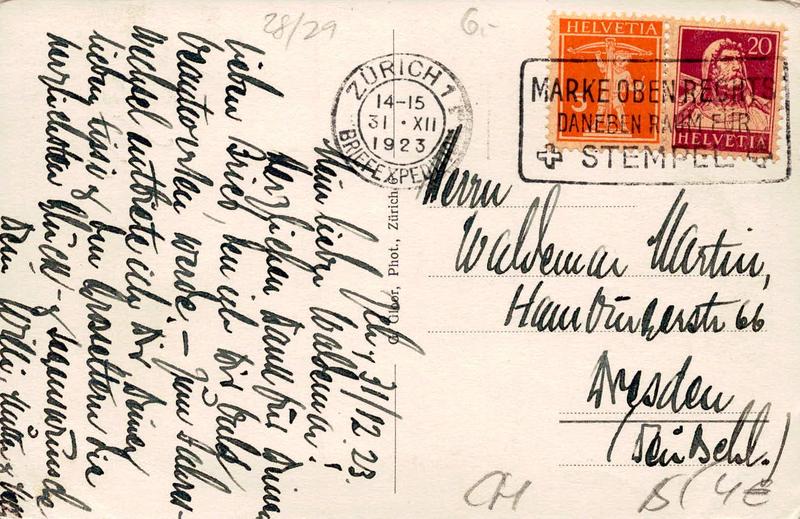 28/29
6.-
HELVETIA
5
20
HELVETIA
ZÜRICH 1
14-15
31 · XII
1923
BRIEFEXPEDITION
MARKE OBEN RECHTS
DANEBEN RAUM FÜR
STEMPEL
Herrn
Waldemar Martin,
Hamburgerstr 66
Dresden
(Deutschl.)
Gloor, Phot., Zürich
31/12 23.
Mein lieber Waldemar!
Herzlichen Dank für Deinen
lieben Brief, den ich Dir bald
beantworten werde. – Zum Jahres-
wechsel entbiete ich Dir, Deiner
lieben & den Grosseltern die
herzlichsten Glück- & Segenswünsche
Dein Willi,
CH
4€